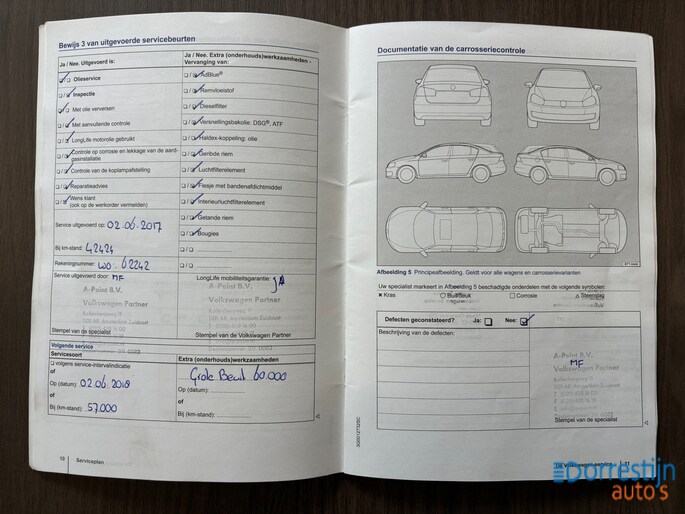 Bewijs 3 van uitgevoerde servicebeurten
Ja / Nee. Uitgevoerd is:
Ja / Nee. Extra (onderhouds)werkzaamheden - Vervanging van:
Olieservice
AdBlue®
Inspectie
Remvloeistof
Met olie verversen
Dieselfilter
Met aanvullende controle
Versnellingsbakolie: DSG®, ATF
LongLife motorolie gebruikt
Haldex-koppeling: olie
Controle op corrosie en lekkage van de aard-
gasinstallatie
Geribde riem
Controle van de koplampafstelling
Luchtfilterelement
Reparatieadvies
Flesje met bandenafdichtmiddel
Wens klant
(ook op de werkorder vermelden)
Interieurluchtfilterelement
Service uitgevoerd op: 02.06.2017
Getande riem
Bij km-stand: 42424
Bougies
Rekeningnummer: WO 62242
Service uitgevoerd door: MF
LongLife mobiliteitsgarantie: JA
A-Point B.V.
Volkswagen Partner
A-Point B.V.
Volkswagen Partner
Stempel van de specialist
Stempel van de Volkswagen Partner
Volgende service
Servicesoort
Extra (onderhouds)werkzaamheden
volgens service-intervalindicatie
of
Grote Beurt 60.000
Op (datum): 02.06.2018
Op (datum):
of
of
Bij (km-stand): 57.000
Bij (km-stand):
10 Serviceplan
Documentatie van de carrosseriecontrole
Afbeelding 5 Principeafbeelding. Geldt voor alle wagens en carrosserievarianten
Uw specialist markeert in Afbeelding 5 beschadigde onderdelen met de volgende symbolen:
Kras
Corrosie
Steenslag
Defecten geconstateerd? Ja: Nee:
Beschrijving van de defecten:
A-Point B.V.
MF
Volkswagen Partner
Stempel van de specialist
11
Dorrestijn
auto's